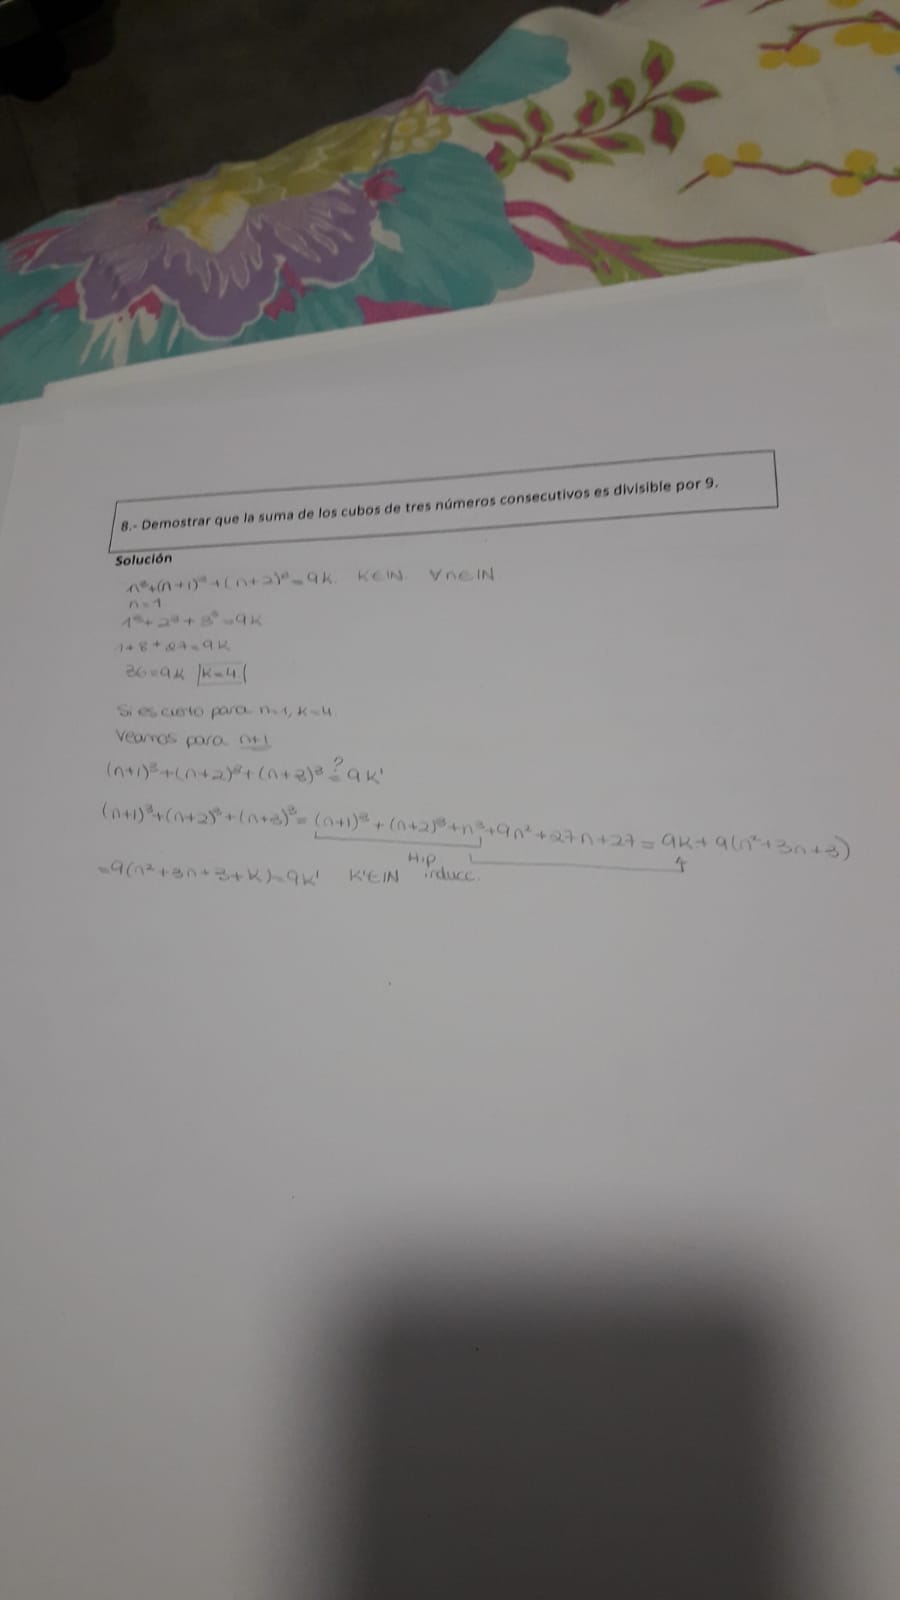 8.- Demostrar que la suma de los cubos de tres números consecutivos es divisible por 9.
Solución
n³+(n+1)³+(n+2)³=9k. K∈IN. ∀n∈IN
n=1
1³+2³+3³=9K
1+8+27=9K
36=9K |k=4|
Si es cierto para n=1, k=4
Veamos para n+1
(n+1)³+(n+2)³+(n+3)³ ?= 9k'
(n+1)³+(n+2)³+(n+3)³=(n+1)³+(n+2)³+n³+9n²+27n+27=9k+9(n²+3n+3)
Hip
=9(n²+3n+3+K)=9K' K'∈IN inducc.